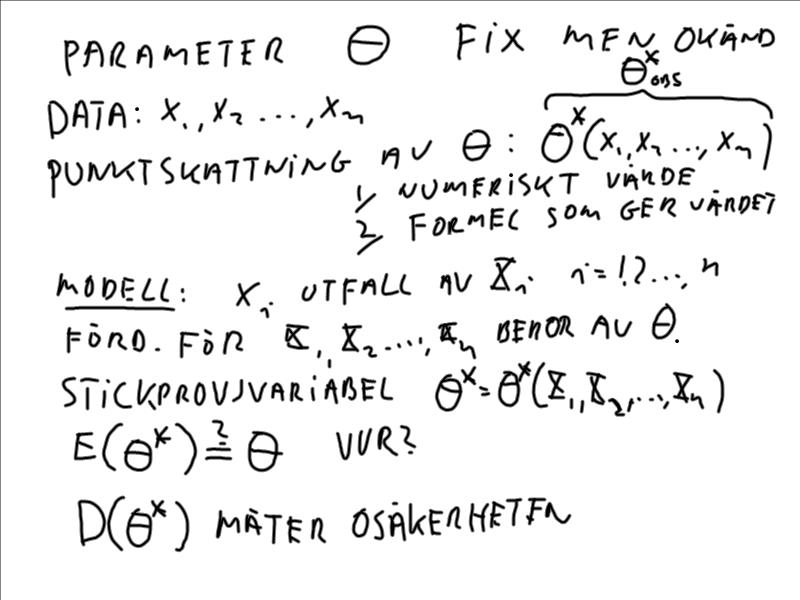 PARAMETER θ FIX MEN OKÄND
θ*obs
DATA: x₁, x₂ ..., xₙ
PUNKTSKATTNING AV θ: θ*(x₁, x₂ ..., xₙ)
1, NUMERISKT VÄRDE
2, FORMEL SOM GER VÄRDET
MODELL: xᵢ UTFALL AV Xᵢ i=1,2...,n
FÖRD. FÖR X₁, X₂ ..., Xₙ BEROR AV θ.
STICKPROVSVARIABEL θ* = θ*(X₁, X₂, ..., Xₙ)
E(θ*) ≟ θ VVR?
D(θ*) MÄTER OSÄKERHETEN